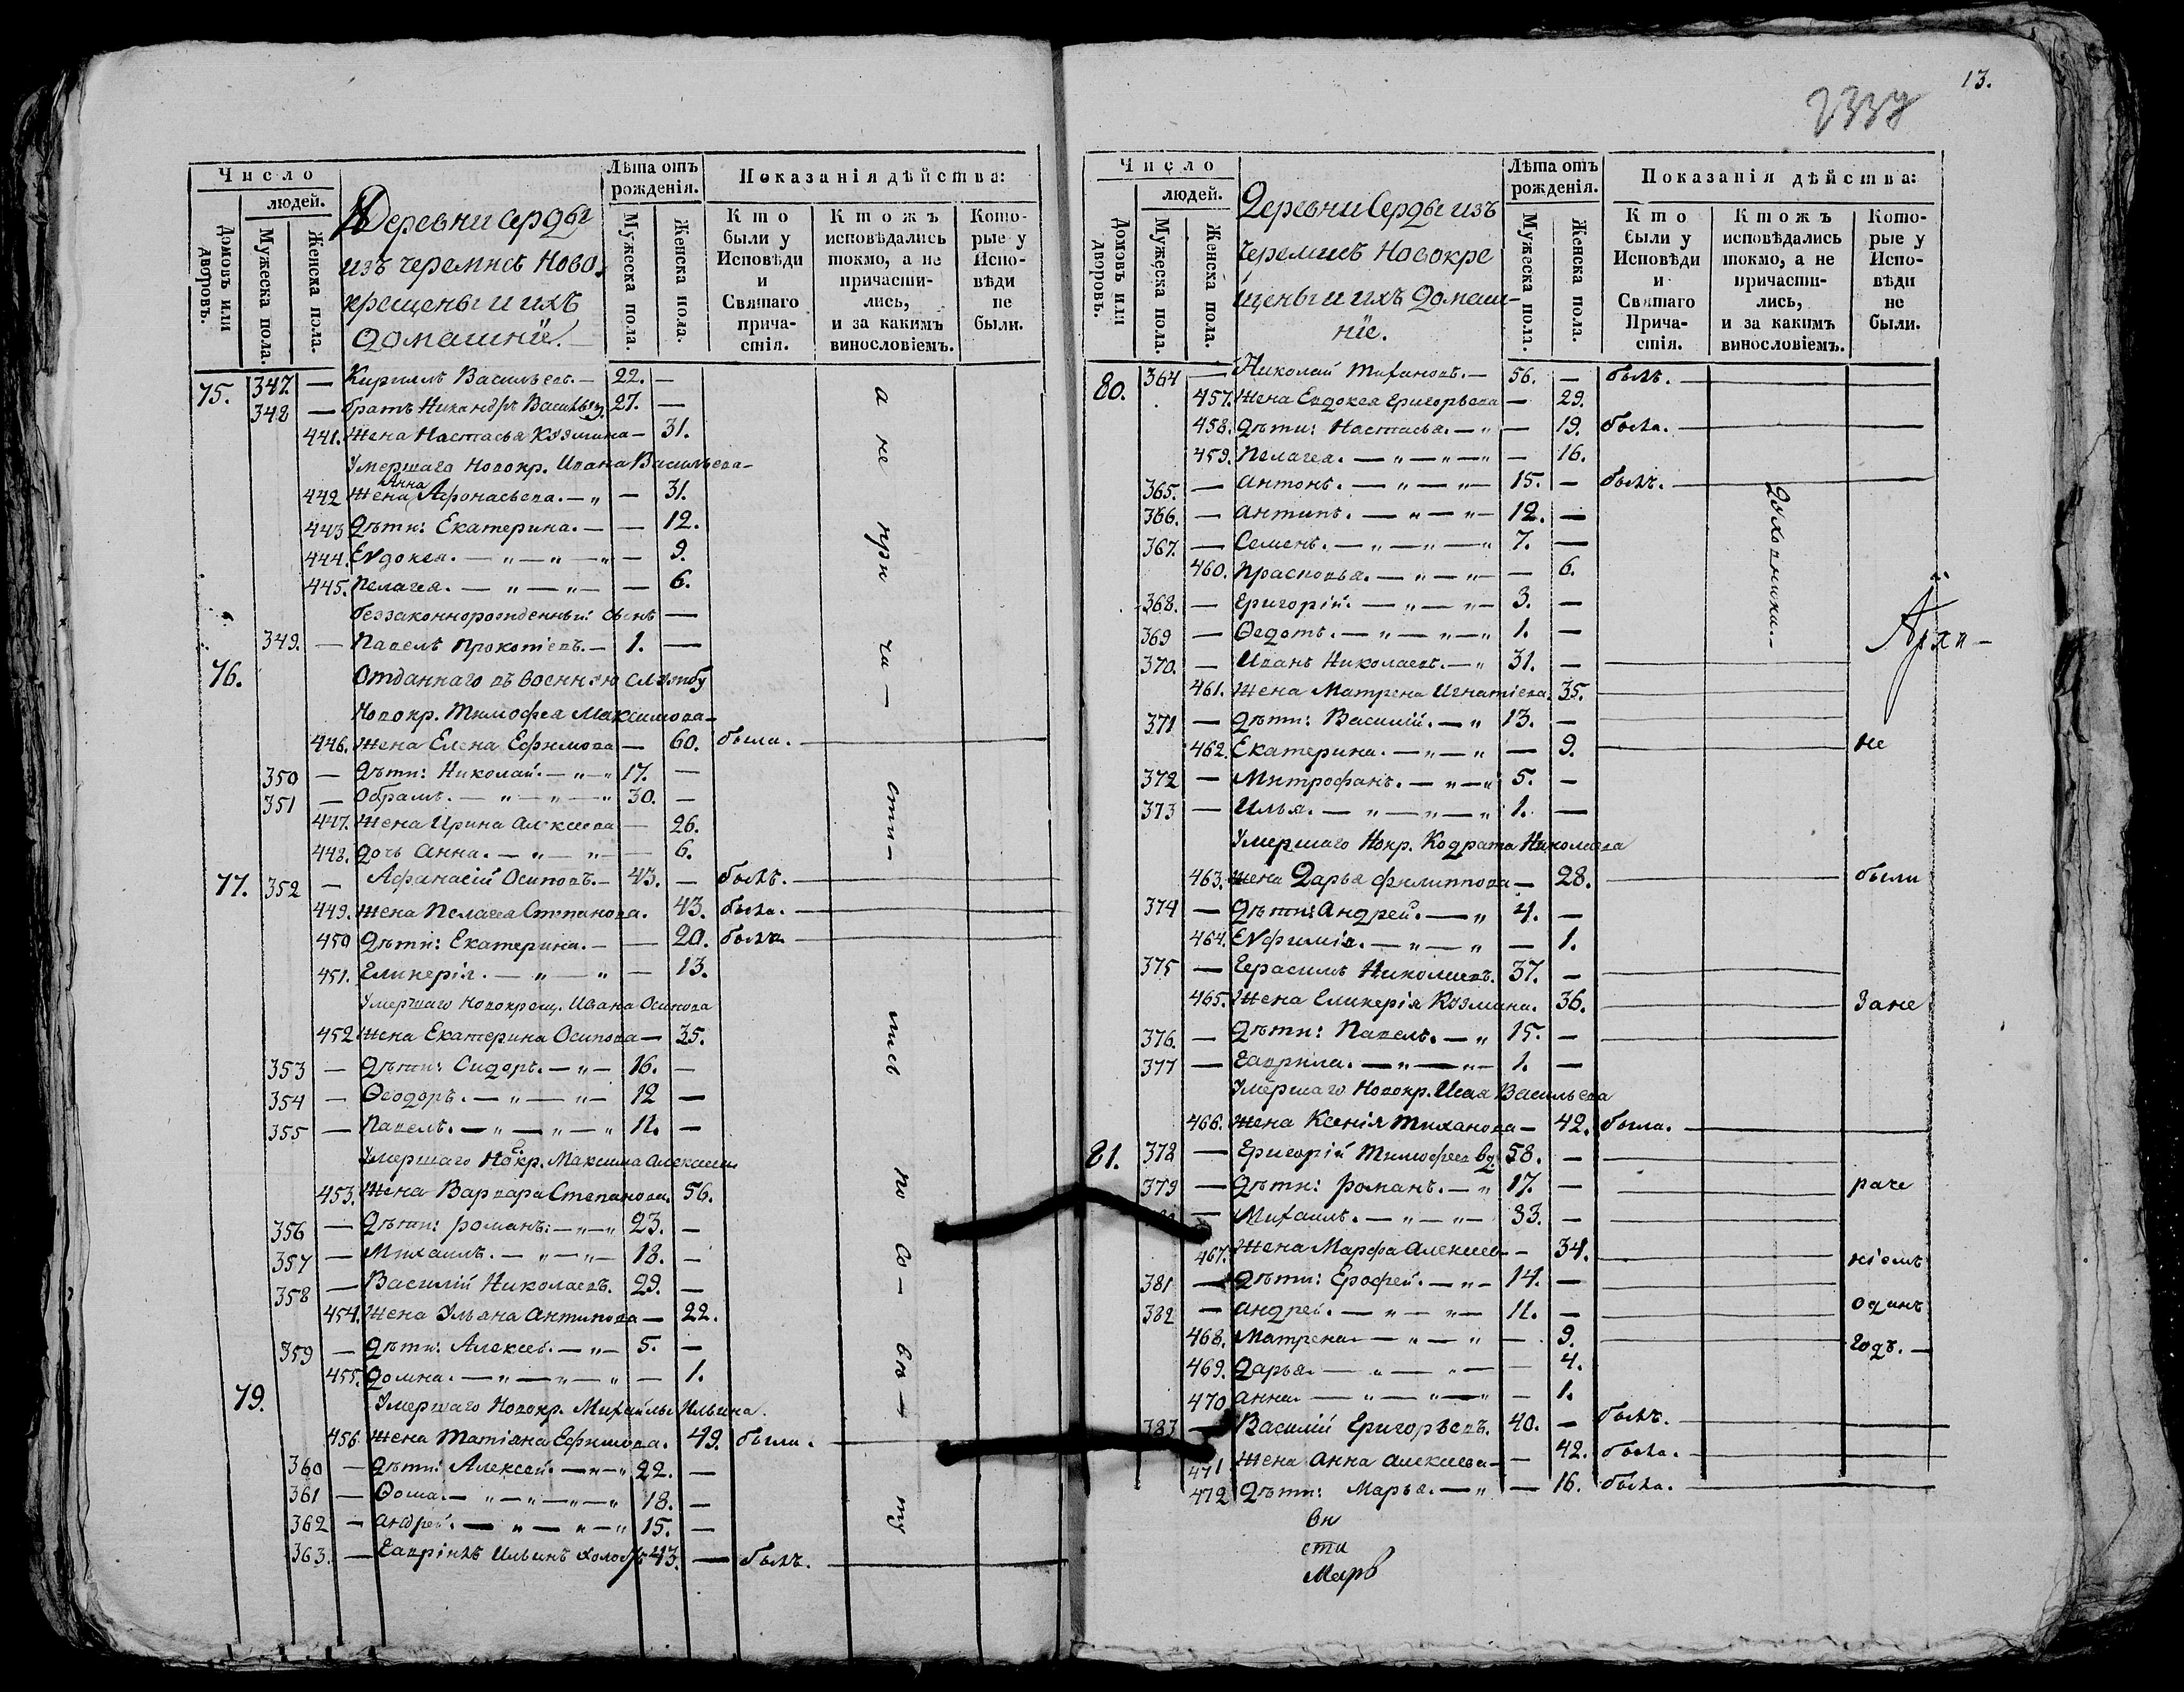 13.
Число
людей.
Домовъ или дворовъ.
Мужеска пола.
Женска пола.
Деревни серды
изъ черемисъ Ново
крещены и ихъ
домашнїе.
Лѣта отъ
рожденія.
Мужеска пола.
Женска пола.
Показанія дѣйства:
Кто
были у
Исповѣди
и
Святаго
прича-
стія.
Ктожъ
исповѣдались
токмо, а не
причасти-
лись,
и за какимъ
винословіемъ.
Кото-
рые у
Испо-
вѣди
не
были.
75. 347. — Кириллъ Васильевъ. — 22. —
348 — братъ Никандръ Васильев. 27. —
441. Жена Настасья Козмина — 31.
Умершаго Новокр. Ивана Васильева —
442 Жена Анна Афонасьева. — " — 31.
443 Дѣти: Екатерина. — — 12.
444. Евдокея. — " — " — " — 9.
445. Пелагея. — " — " — — 6.
беззаконнорожденный сынъ —
349. — Павелъ Прокопіевъ. — 1. —
76. Отданнаго въ военную службу
Новокр. Тимофея Максимова —
446. Жена Елена Ефимова — 60. была.
350 — Дѣти: Николай. — " — " 17. —
351 — Обрамъ. — " — " — " 30. —
447. Жена Ирина Алксеева — 26.
448. дочь Анна. — " — " — — 6.
77. 352 — Афанасій Осиповъ. — 43. — былъ.
449. Жена Пелагея Степанова. 43. была.
450 Дѣти: Екатерина. — — 20. была.
451. Гликерія. — " — " — 13.
Умершаго Новокрещ. Ивана Осипова
452 Жена Екатерина Осипова — 35.
353 — Дѣти: Сидоръ. — " — 16. —
354 — Ѳеодоръ. — " — " — 12 —
355 — Павелъ. — " — " — " 11. —
Умершаго Новокр. Максима Алексеева
453. Жена Варвара Степанова. 56.
356 — Дѣти: романъ: — " — " 23. —
357 — Михаилъ. — " — " — 18. —
358 — Василій Николаевъ. 29. —
454. Жена Ульяна Антипова — 22.
359 — Дѣти: Алексей. — " — 5. —
455. Домна. — " — " — " — 1.
79. Умершаго Новокр. Михайлы Ильина.
456 Жена Татіана Ефимова. 49. была.
360 — Дѣти: Алексей. — " — " 22. —
361 — Ѳома. — " — " — " — " 18. —
362 — Андрей. — " — " — " 15. —
363. — Гавріилъ Ильинъ холостъ 43. — былъ.
а не при ча — сти — лись по со — вѣ — ту
Число
людей.
Домовъ или дворовъ.
Мужеска пола.
Женска пола.
Деревни Серды изъ
черемисъ Новокре
щены и ихъ домаш-
нїе.
Лѣта отъ
рожденія.
Мужеска пола.
Женска пола.
Показанія дѣйства:
Кто
были у
Исповѣди
и
Святаго
Прича-
стія.
Ктожъ
исповѣдались
токмо, а не
причасти-
лись,
и за какимъ
винословіемъ.
Кото-
рые у
Испо-
вѣди
не
были.
80. 364 — Николай Тихановъ. — 56. — былъ.
457. Жена Евдокея Григорьева — 29.
458. Дѣти: Настасья. — " — 19. была.
459. Пелагея. — " — " — " — 16.
365. — Антонъ. — " — " — 15. — былъ.
366. — Антипъ. — " — " — 12. —
367. — Семенъ. — " — " — " 7. —
460. Прасковья. — " — " — — 6.
368. — Григорій. — " — " — 3. —
369 — Ѳедотъ. — " — " — " 1. —
370. — Иванъ Николаевъ. — " 31. —
461. Жена Матрена Игнатіева. 35.
371 — Дѣти: Василій. — " 13. —
462. Екатерина. — " — " — 9. не
372 — Митрофанъ. — " — " 5. —
373 — Илья. — " — " — " 1. —
Умершаго Нокр. Кодрата Николаева
463. Жена Дарья Филиппова — 28. были
374 — Дѣти: Андрей. — " 4. —
464. Евфимія. — " — " — 1.
375 — Герасимъ Николаевъ. 37. —
465. Жена Гликерія Козмина. 36. Зане
376. — Дѣти: Павелъ. — " 15. —
377 — Гаврила. — " — " — 1. —
Умершаго Новокр. Исая Васильева
466. Жена Ксенія Тиханова — 42. была.
81. 378 — Григорій Тимофеев вд. 58. —
379 — Дѣти: романъ. — " 17. — раче
— Михаилъ. — " — " — 33. —
467. Жена Марфа Алексеев — 34. ніемъ
381 — Дѣти: Ерофей. — " — 14. —
382 — Андрей. — " — " — 11. — одинъ
468. Матрена — " — " — 9. годъ. —
469. Дарья. — " — " — — 4.
470 Анна. — " — " — " — 1.
383 — Василій Григорьевъ. 40. — былъ.
471 Жена Анна Алексеева — — 42. была.
472 Дѣти: Марья. — " — 16. была.